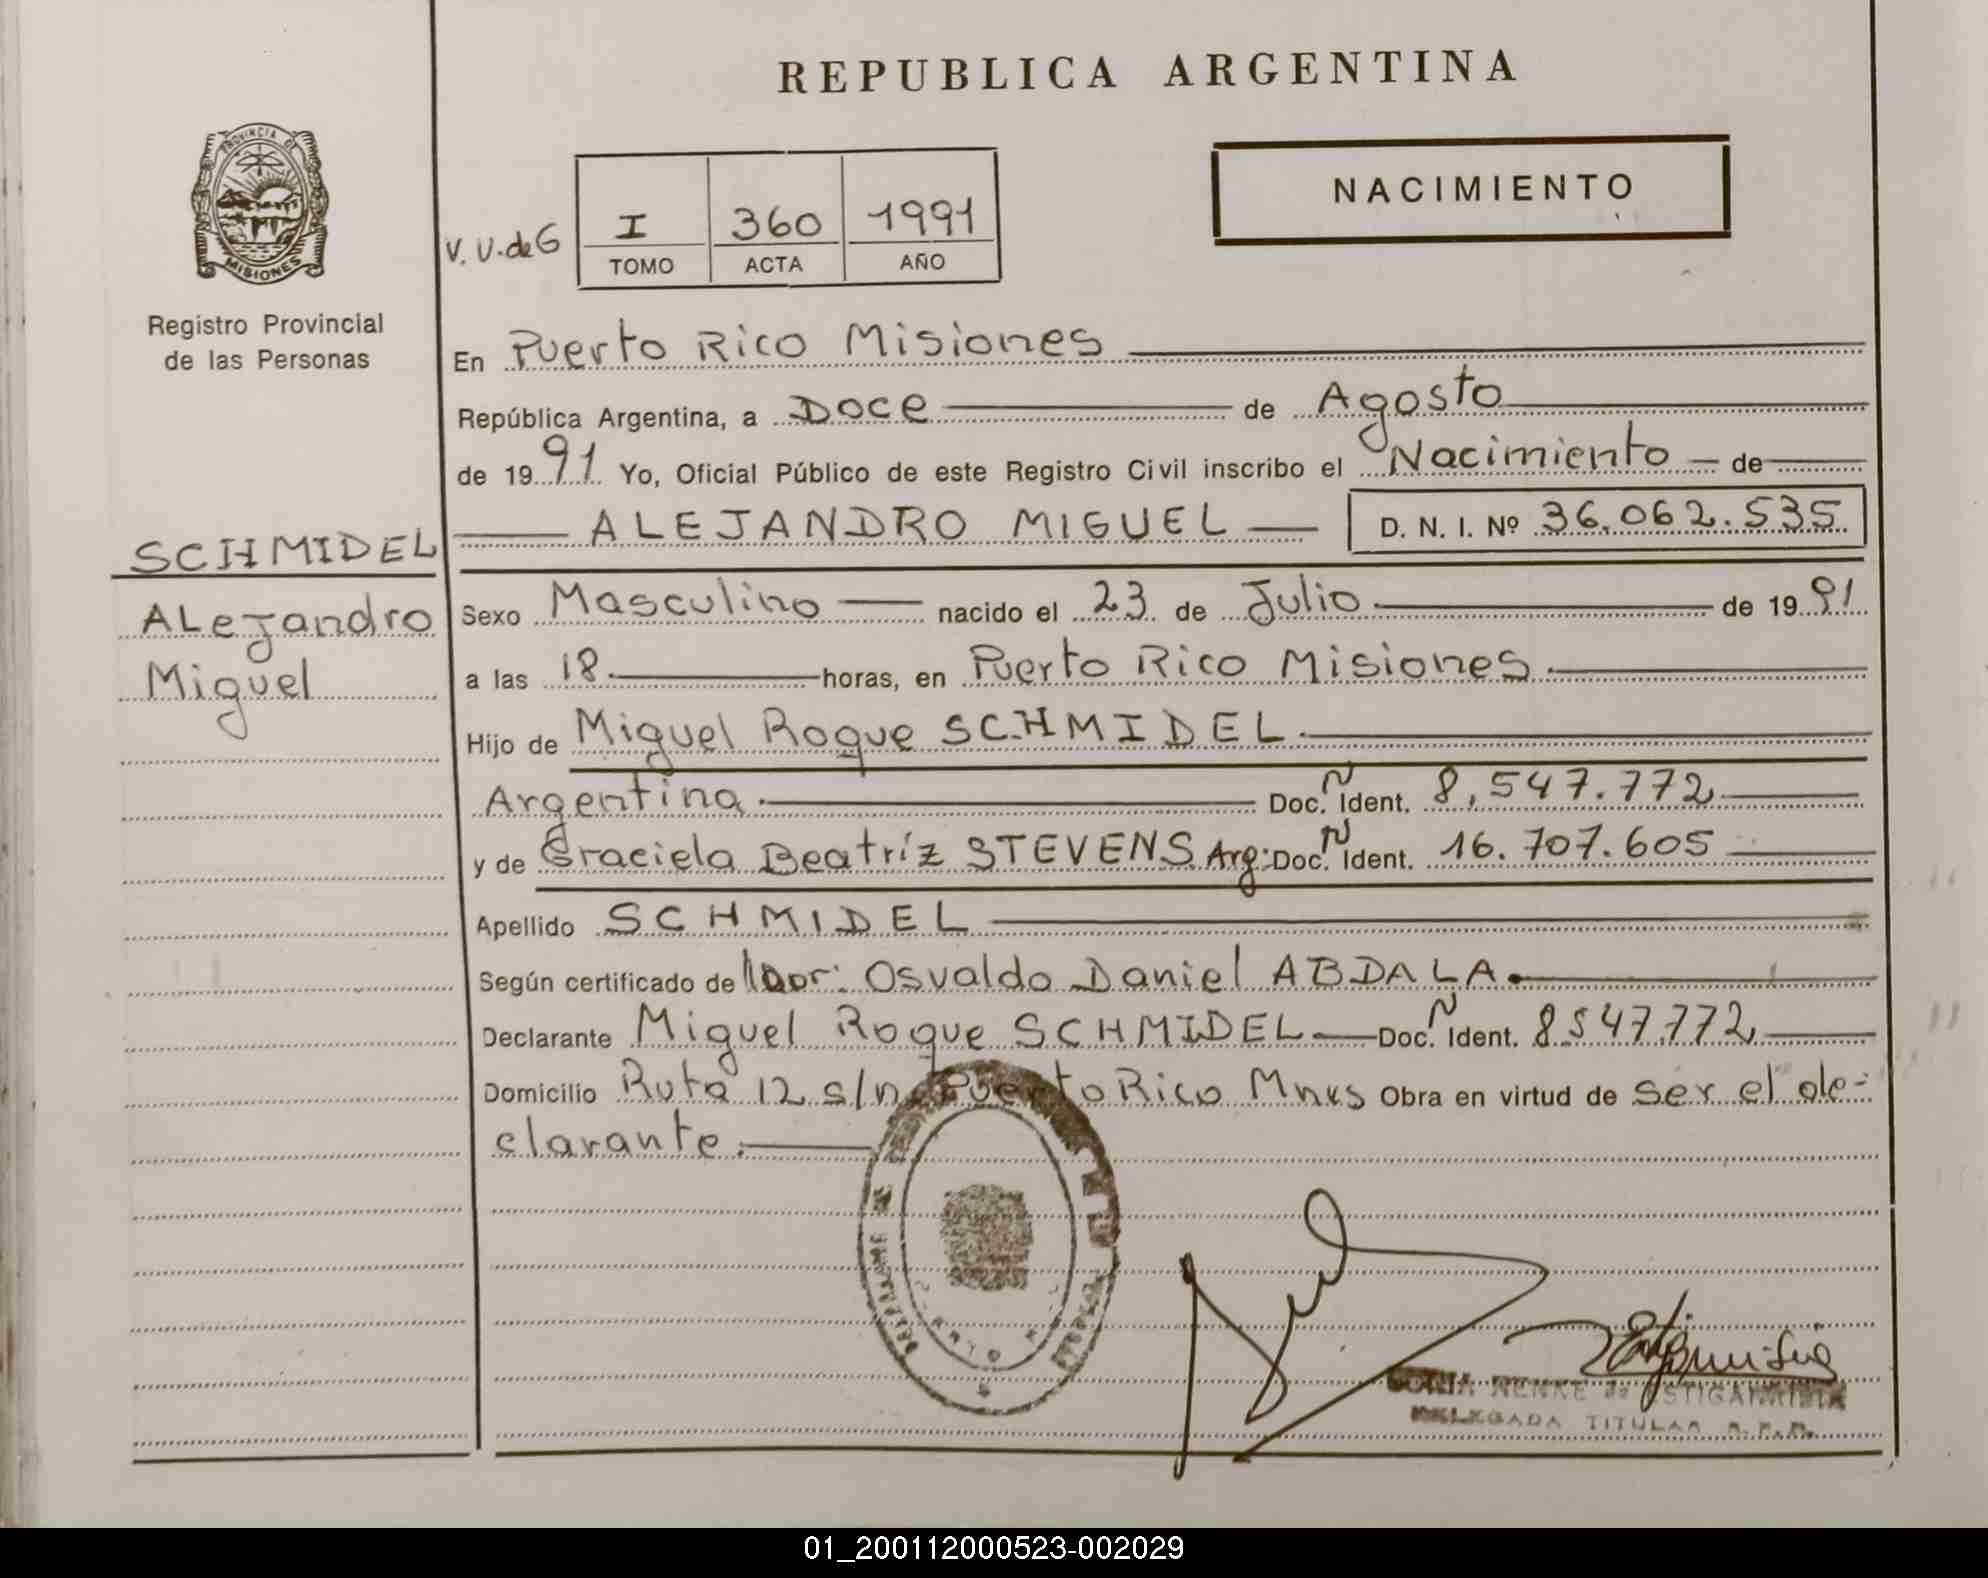 REPUBLICA ARGENTINA
PROVINCIA DE
MISIONES
Registro Provincial
de las Personas
NACIMIENTO
V. V. de G
I 360 1991
TOMO ACTA AÑO
En Puerto Rico Misiones
República Argentina, a Doce de Agosto
de 1991 Yo, Oficial Público de este Registro Civil inscribo el Nacimiento de
ALEJANDRO MIGUEL D. N. I. Nº 36.062.535
SCHMIDEL
Alejandro
Miguel
Sexo Masculino nacido el 23 de Julio de 1991
a las 18 horas, en Puerto Rico Misiones
Hijo de Miguel Roque SCHMIDEL
Argentina Doc. N Ident. 8,547.772
y de Graciela Beatríz STEVENS Arg: Doc. N Ident. 16.707.605
Apellido SCHMIDEL
Según certificado de Osvaldo Daniel ABDALA.
Declarante Miguel Roque SCHMIDEL Doc. N Ident. 8547.772
Domicilio Ruta 12 s/n Puerto Rico Mnes Obra en virtud de ser el de-
clarante.
DELEGADA TITULAR R. P. P.
01_200112000523-002029